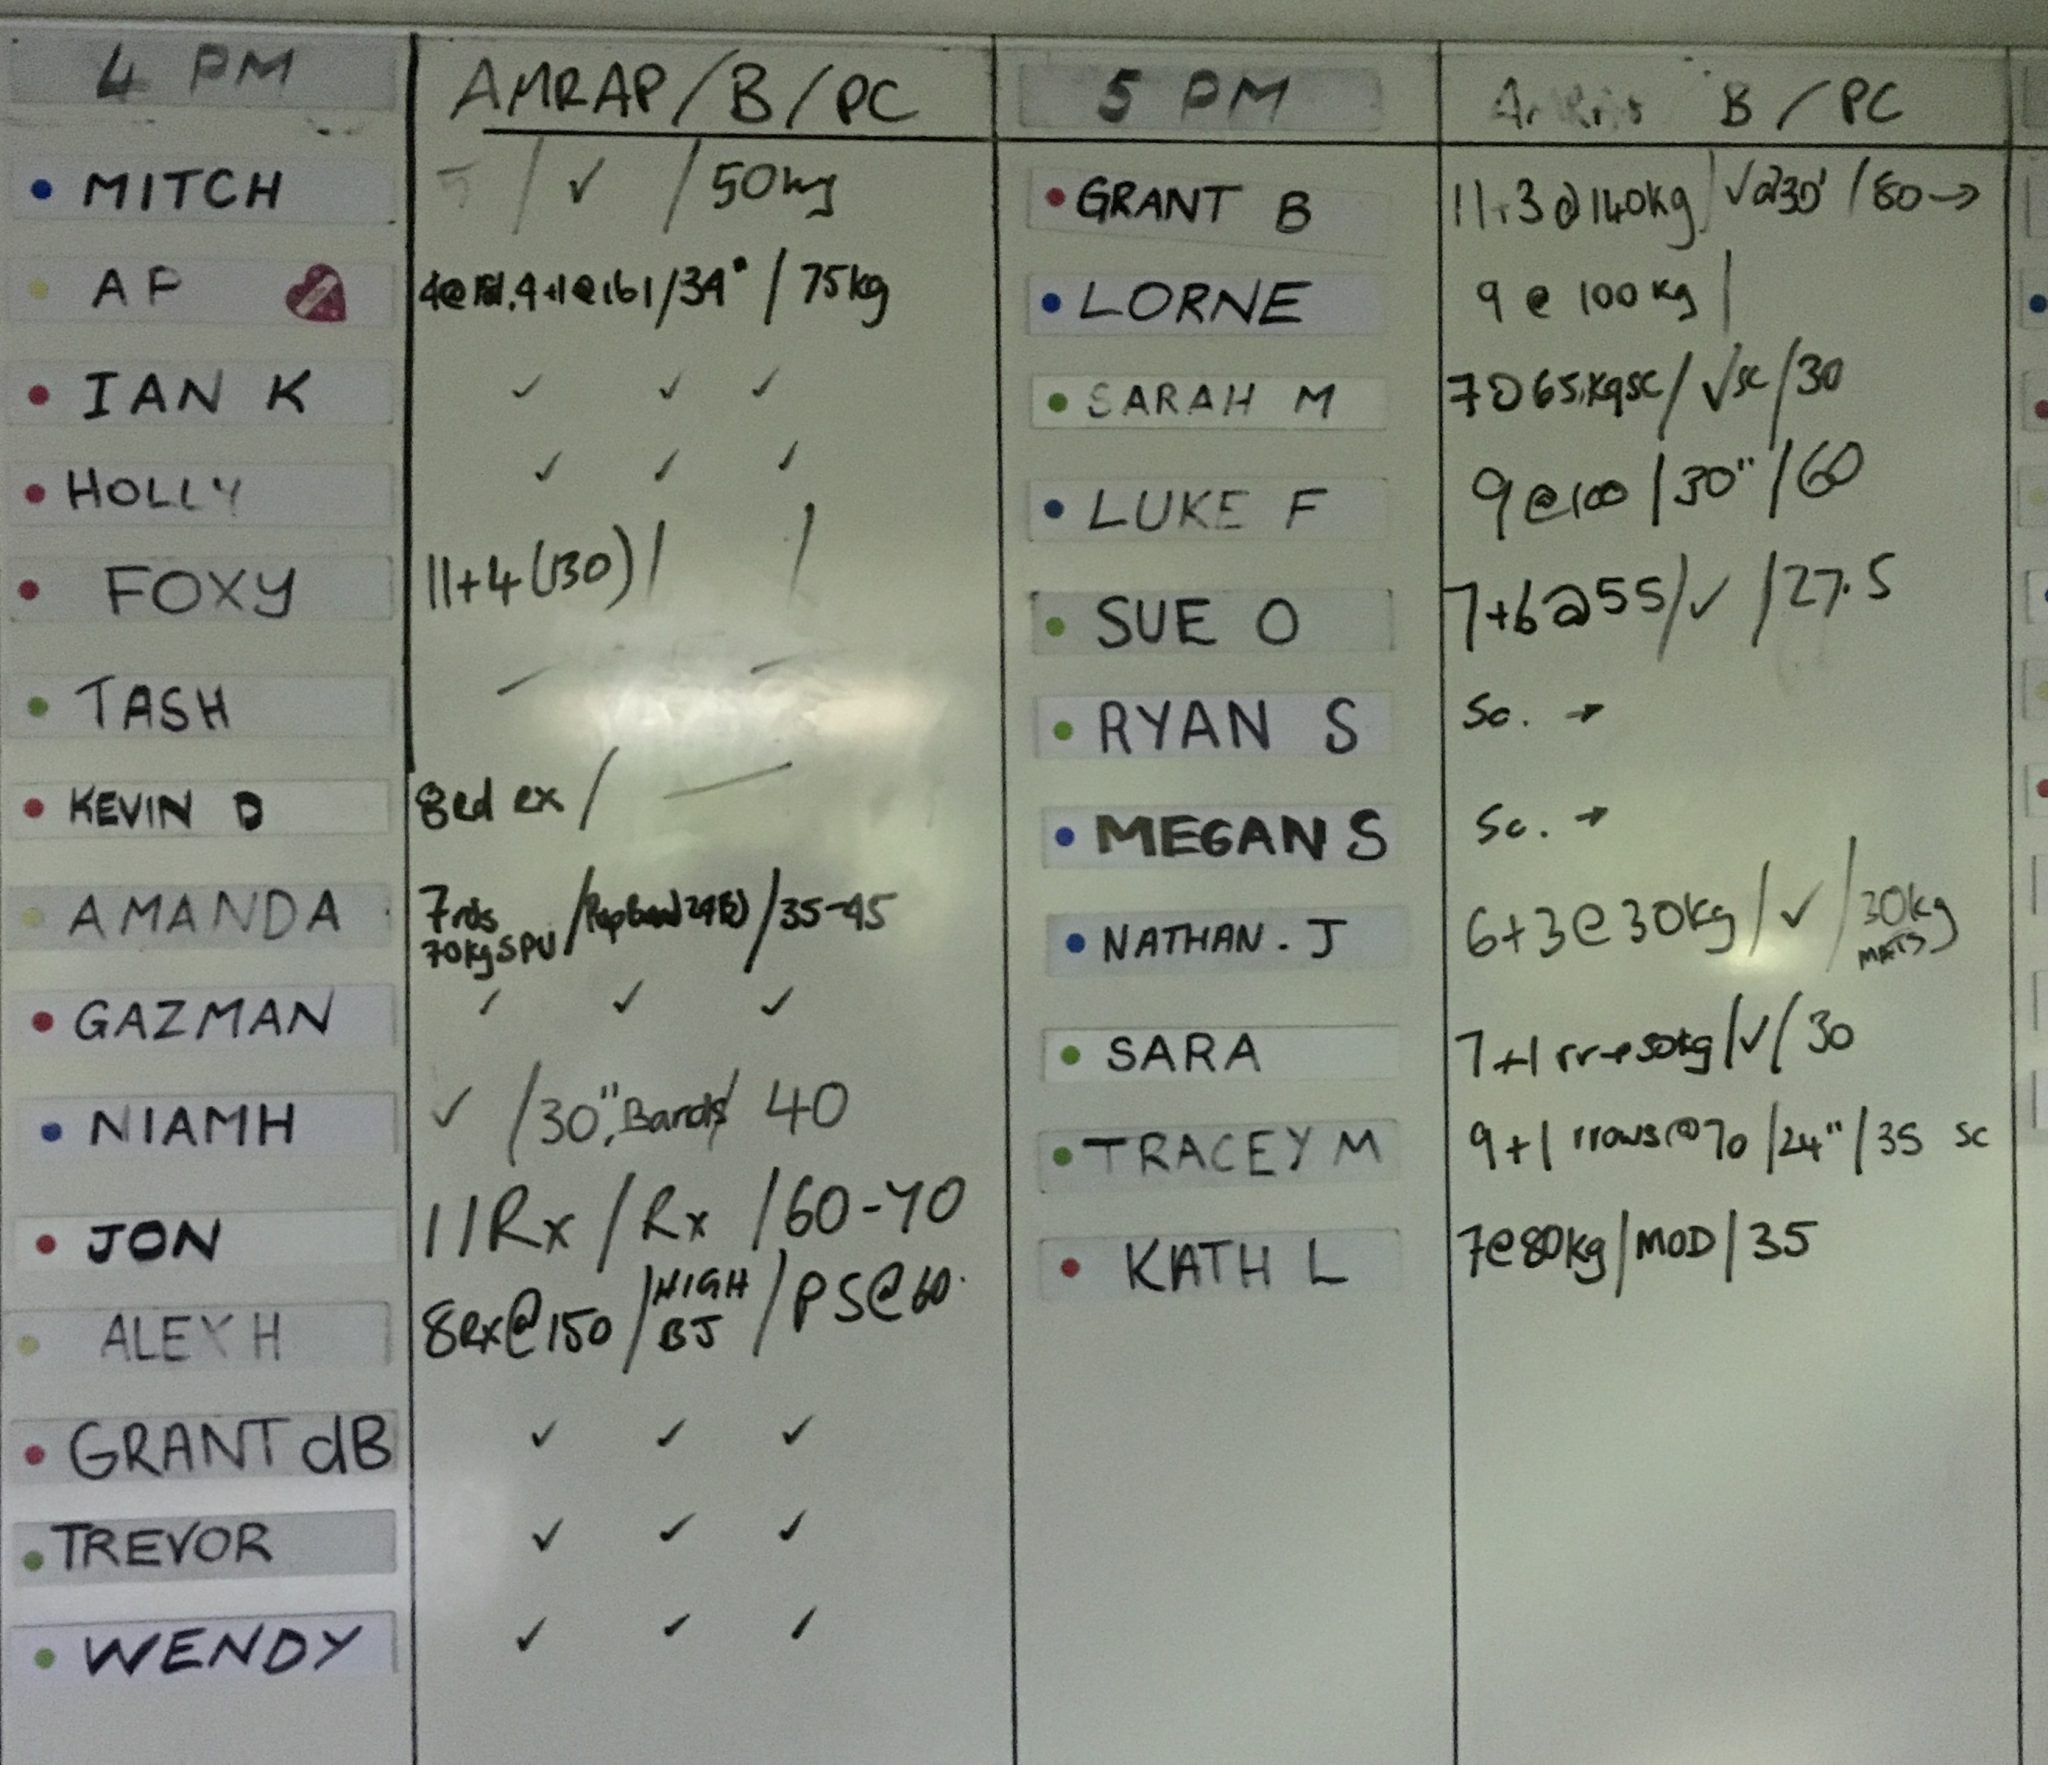 4 PM AMRAP/B/PC
MITCH 5 / ✓ / 50kg
AP /34" / 75kg
IAN K ✓ ✓ ✓
HOLLY ✓ ✓ ✓
FOXY 11+4(130) / /
TASH — —
KEVIN D 8 rx / —
AMANDA 7rds / /35-45
70kg SPU
GAZMAN ✓ ✓ ✓
NIAMH ✓ /30", Bands/ 40
JON 11Rx / Rx /60-70
ALEX H 8Rx@150 / HIGH BJ / PS@60.
GRANT dB ✓ ✓ ✓
TREVOR ✓ ✓ ✓
WENDY ✓ ✓ ✓
5 PM B / PC
GRANT B 11+3@140kg / ✓@30' / 80→
LORNE 9@100kg /
SARAH M 7@65kg sc / ✓sc / 30
LUKE F 9@100 / 30" / 60
SUE O 7+6@55 / ✓ / 27.5
RYAN S Sc. →
MEGAN S Sc. →
NATHAN. J 6+3@30kg / ✓ / 30kg
MATS
SARA 7+1 50kg / ✓ / 30
TRACEY M 9+1 rrows@70 / 24" / 35 sc
KATH L 7@80kg / MOD / 35